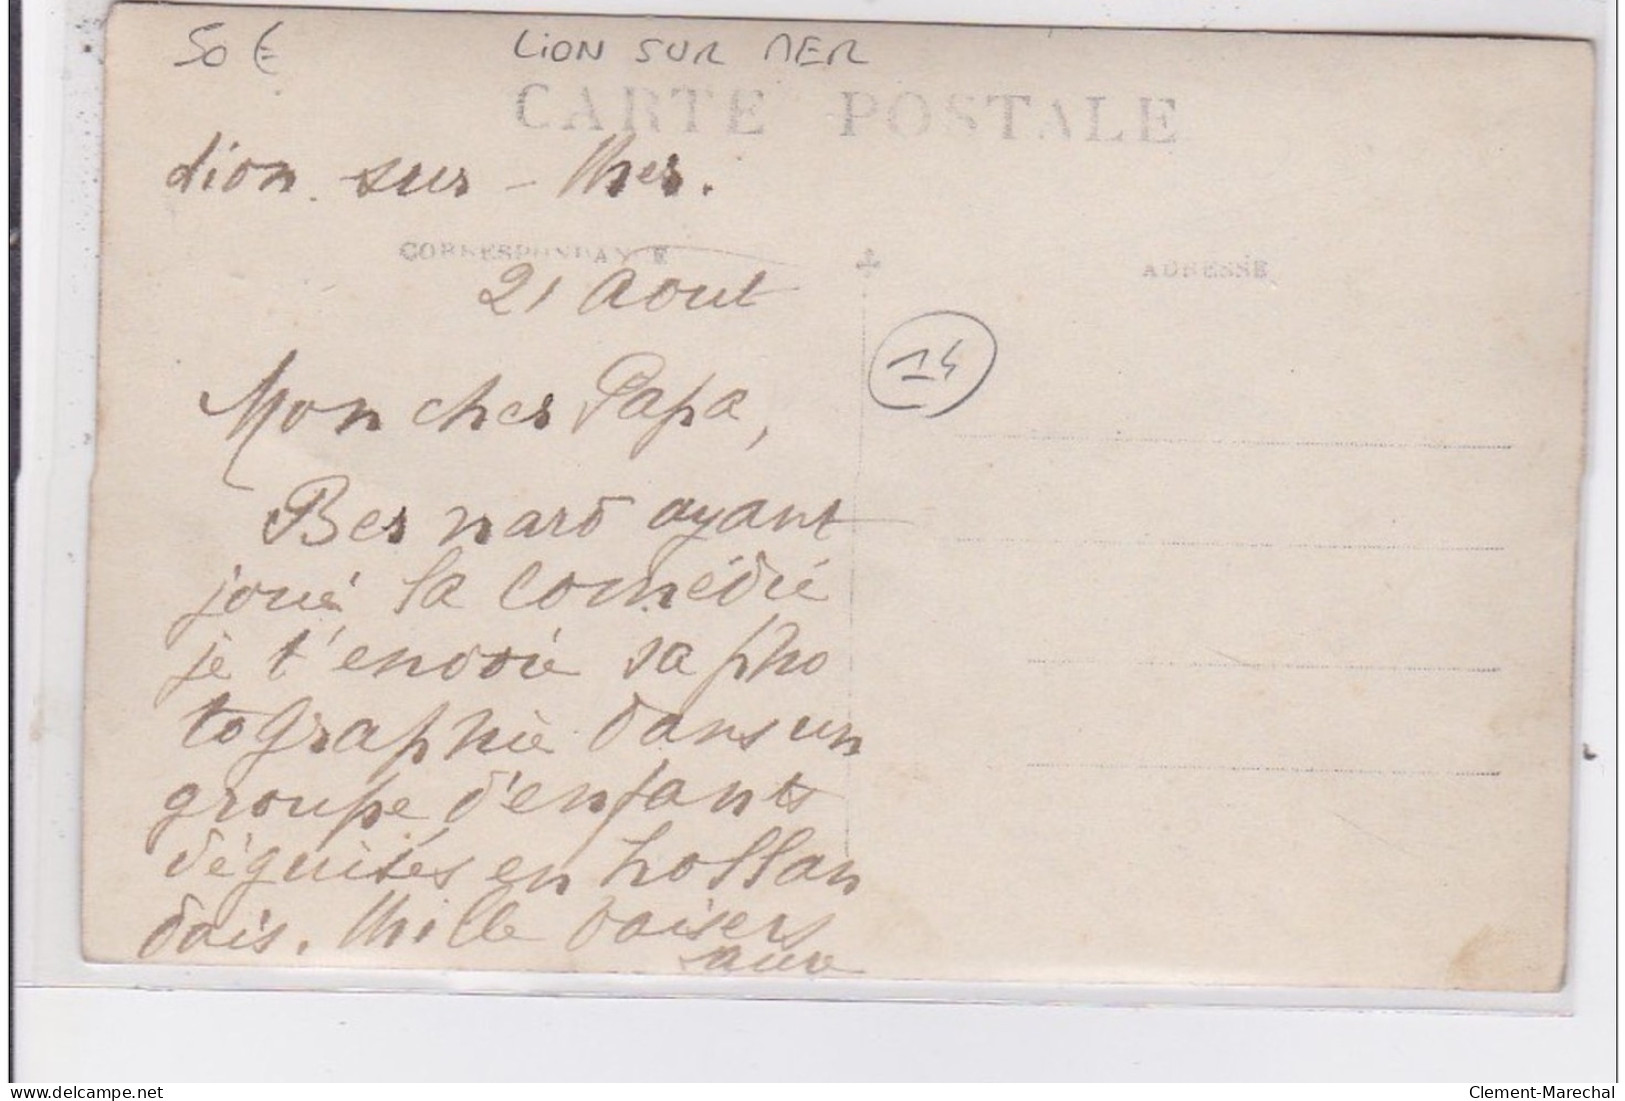 50 €
LION SUR MER
CARTE POSTALE
Lion sur - Mer.
CORRESPONDANCE
ADRESSE
21 Aout
14
Mon cher Papa,
Bernard ayant
joué la comédie
je t'envoie sa pho
tographie dans un
groupe d'enfants
déguisés en hollan
dais. Mille baisers
delcampe.net
Clement-Marechal